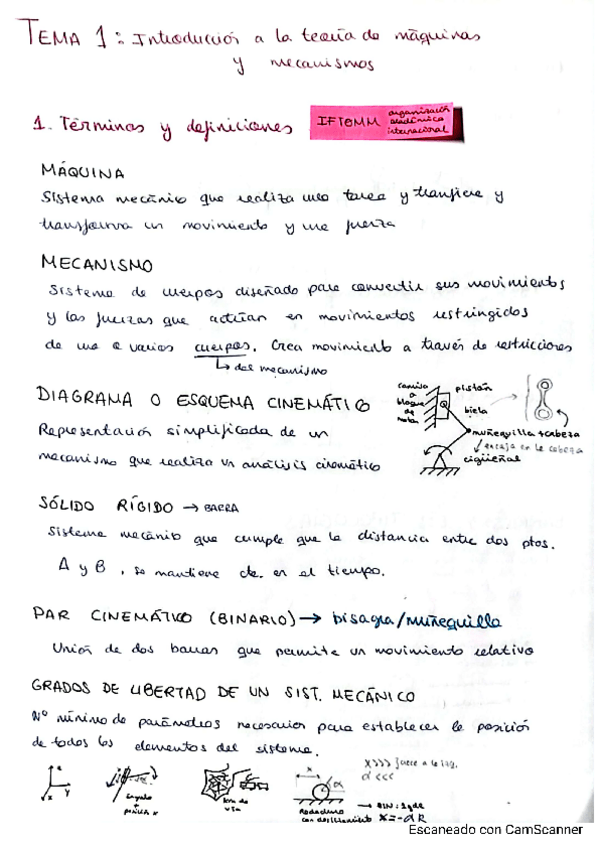 TEMA 1: Introducción a la teoría de máquinas
y mecanismos
1. Términos y definiciones
IFTOMM
organización
académica
internacional
MÁQUINA
Sistema mecánico que realiza una tarea y transfiere y
transforma un movimiento y una fuerza
MECANISMO
Sistema de cuerpos diseñado para convertir sus movimientos
y las fuerzas que actúan en movimientos restringidos
de uno o varios cuerpos. Crea movimiento a través de restricciones
↳ del mecanismo
DIAGRAMA O ESQUEMA CINEMÁTICO
Representación simplificada de un
mecanismo que realiza un análisis cinemático
camisa
o
bloque
de
motor
pistón
biela
muñequilla + cabeza
encaja en la cabeza
cigüeñal
SÓLIDO RÍGIDO → BARRA
Sistema mecánico que cumple que la distancia entre dos ptos.
A y B, se mantiene cte. en el tiempo.
PAR CINEMÁTICO (BINARIO) → bisagra/muñequilla
Unión de dos barras que permite un movimiento relativo
GRADOS DE LIBERTAD DE UN SIST. MECÁNICO
Nº mínimo de parámetros necesarios para establecer la posición
de todos los elementos del sistema.
x
y
ángulo
+
posición x
x
α
Rodadura
con deslizamiento
x>>>
α <<<
→ SIN: 1gdl
x=-αR
Escaneado con CamScanner